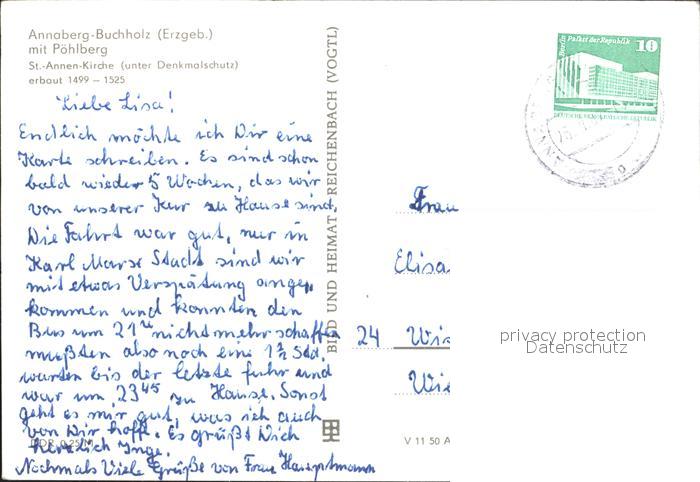 Annaberg-Buchholz (Erzgeb.)
mit Pöhlberg
St.-Annen-Kirche (unter Denkmalschutz)
erbaut 1499 – 1525
Liebe Lisa!
Endlich möchte ich Dir eine
Karte schreiben. Es sind schon
bald wieder 5 Wochen, das wir
von unserer Kur zu Hause sind,
Die Fahrt war gut, nur in
Karl Marx Stadt sind wir
mit etwas Verspätung ange,,
kommen und konnten den
Bus um 21 nicht mehr schaffen
mußten also noch eine 1½ Std.
warten bis der letzte fuhr und
war um 23 45 zu Hause. Sonst
geht es mir gut, was ich auch
von Dir hoffe. Es grüßt Dich
herzlich Inge.
Nochmals Viele Grüße von Frau Hauptmann
DDR 0,25 M
BILD UND HEIMAT REICHENBACH (VOGTL)
V 11 50 A
Berlin Palast der Republik
10
DEUTSCHE DEMOKRATISCHE REPUBLIK
Frau
Elisa
24
privacy protection
Datenschutz